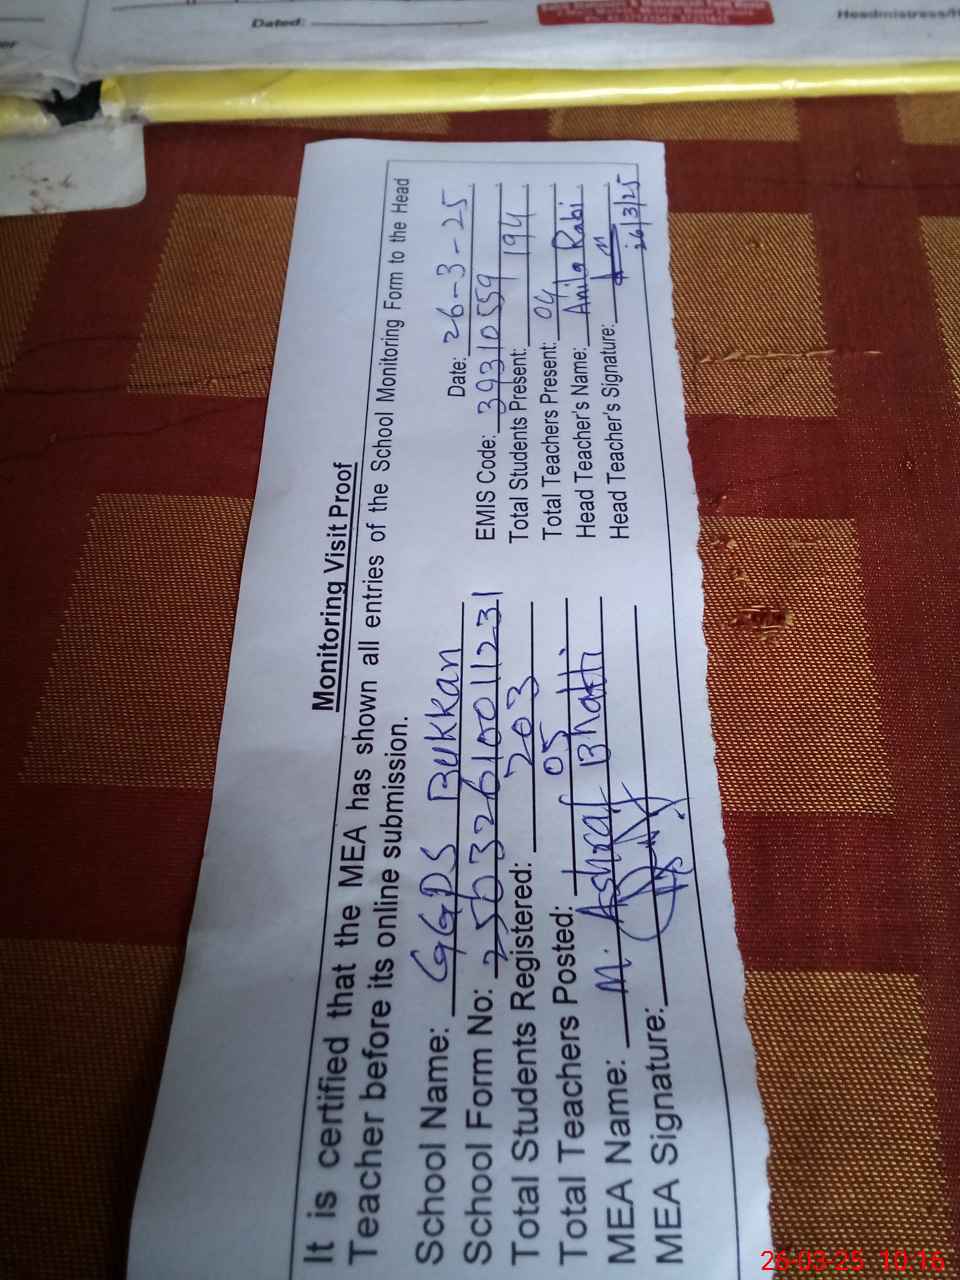 Dated:
Headmistress/
Monitoring Visit Proof
It is certified that the MEA has shown all entries of the School Monitoring Form to the Head
Teacher before its online submission.
Date: 26-3-25
School Name: GGPS Bukkan EMIS Code: 39310559
School Form No: 2563261001231 Total Students Present: 194
Total Students Registered: 203 Total Teachers Present: 04
Total Teachers Posted: 05 Head Teacher's Name: Anila Rabi
MEA Name: M. Ashraf Bhatti Head Teacher's Signature:
MEA Signature: 26/3/25
26-03-25 10:16